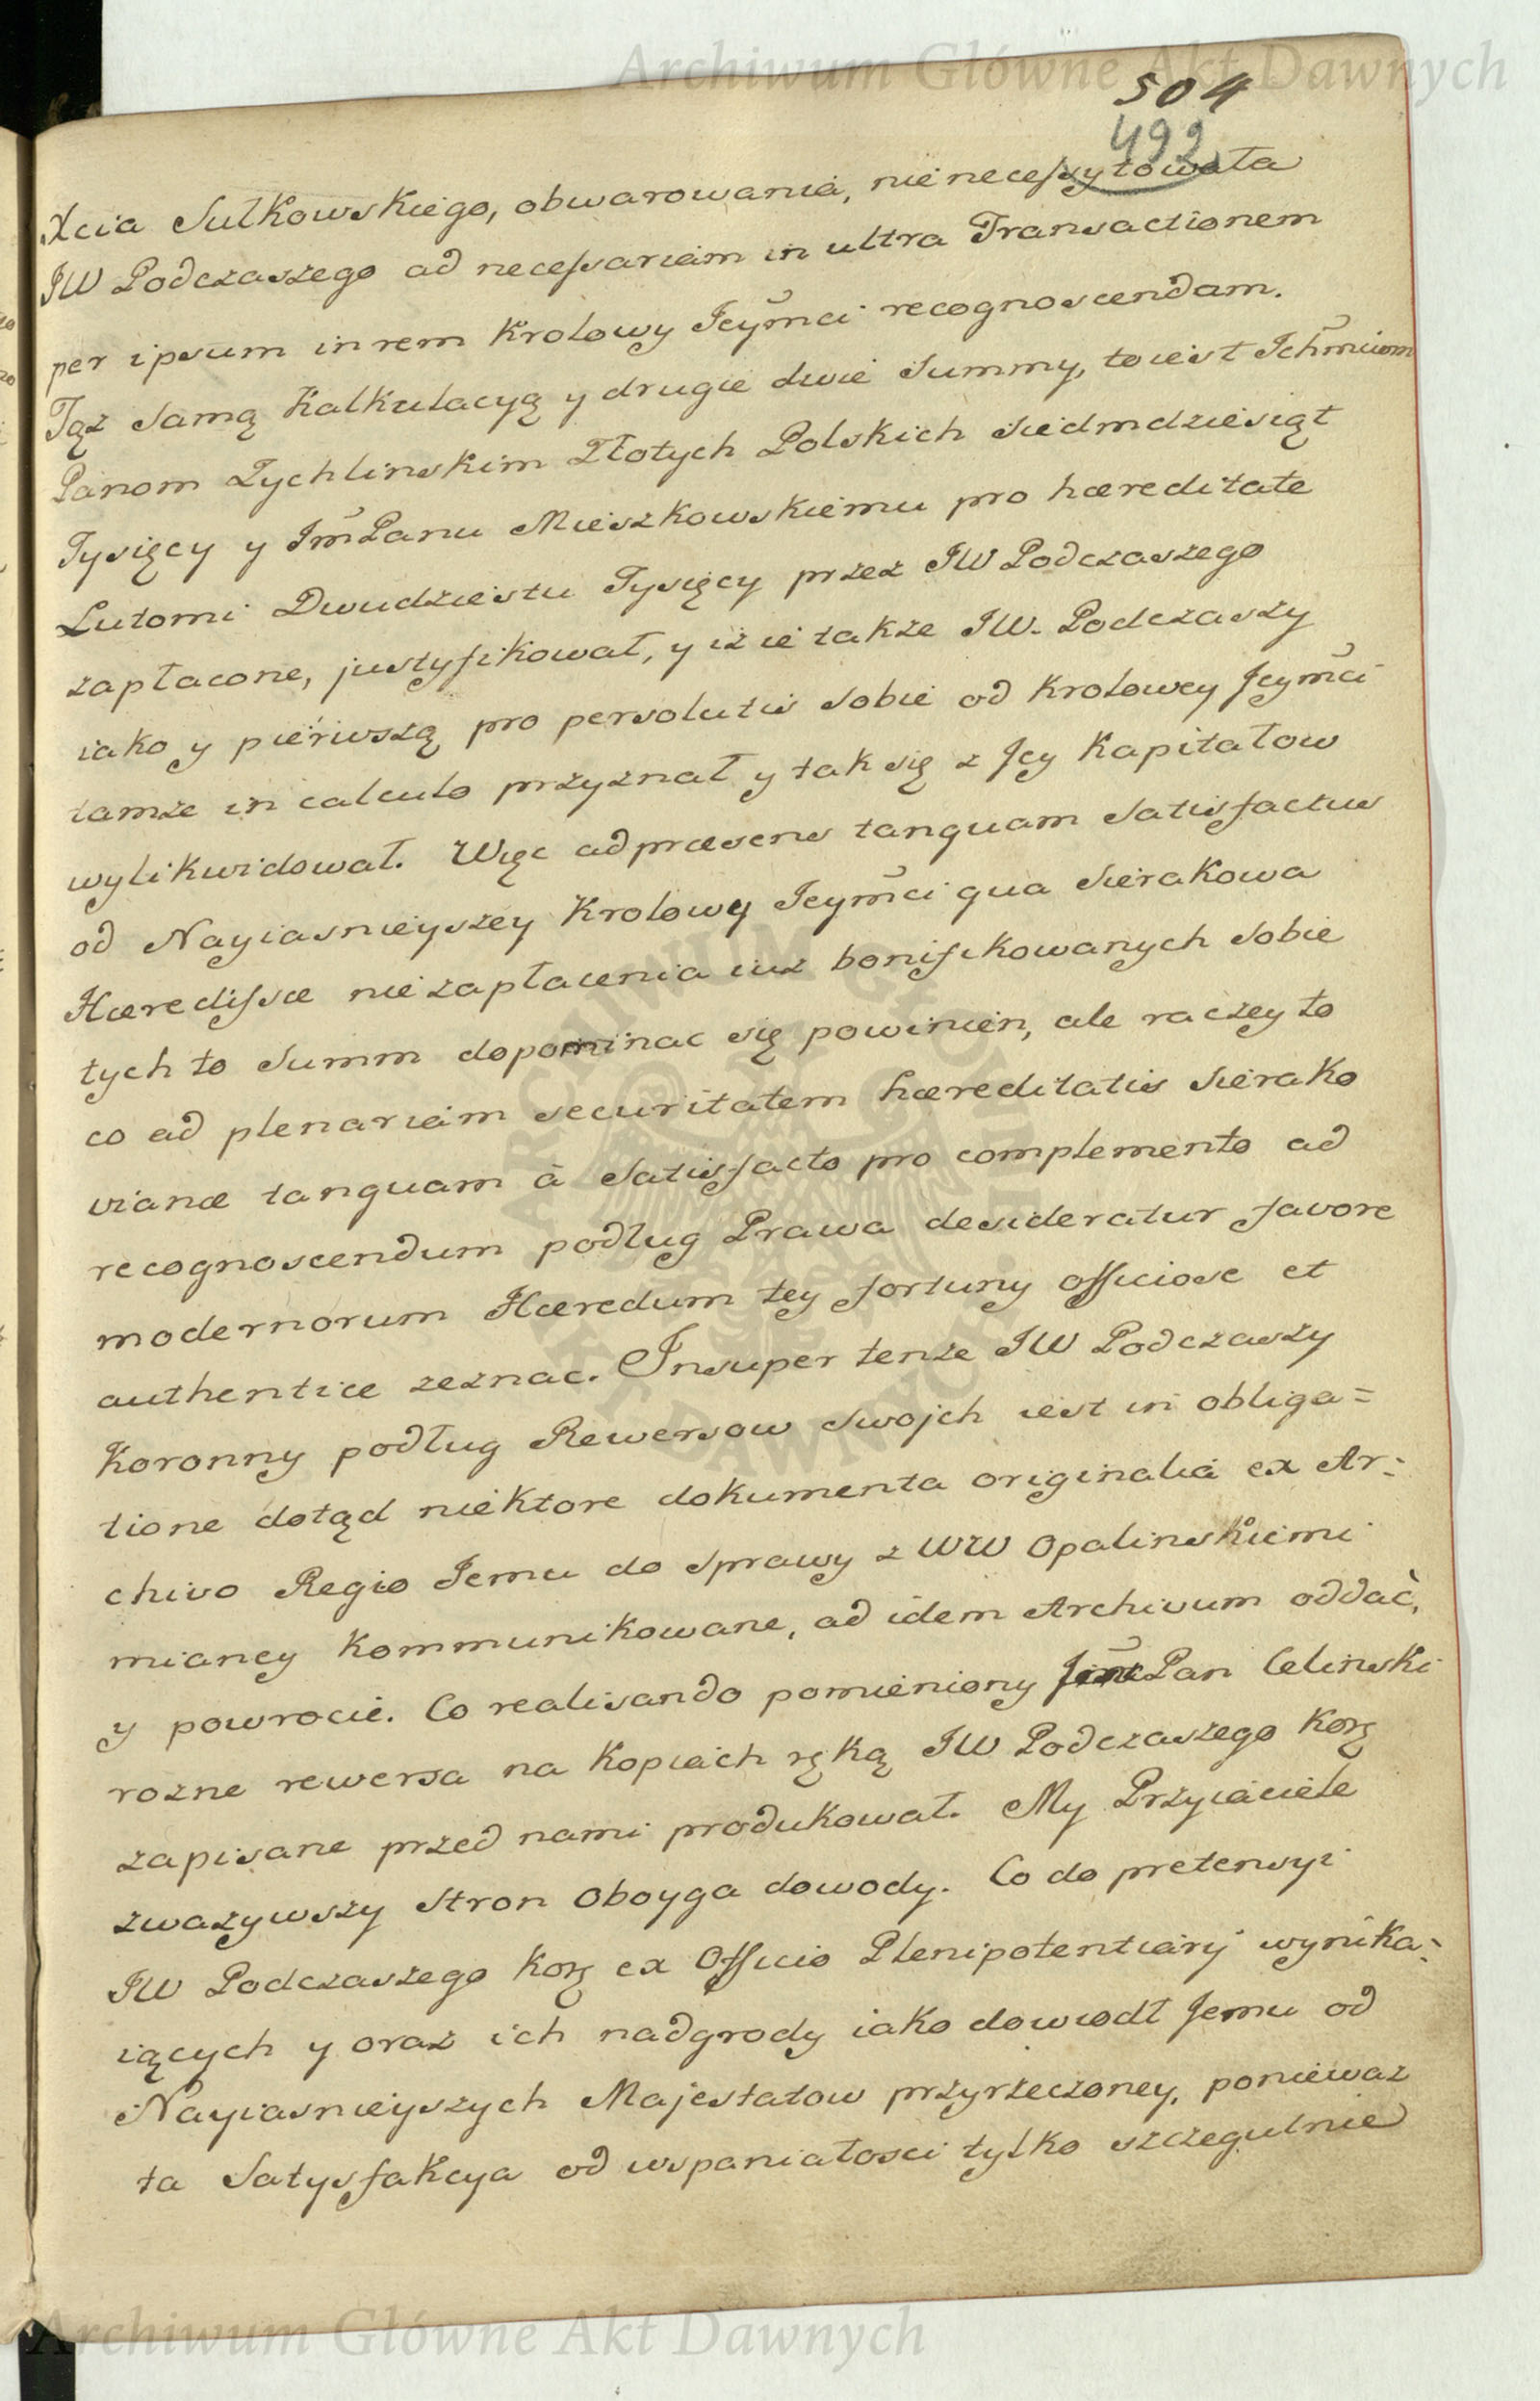 Archiwum Główne Akt Dawnych
504
492
Xcia Sułkowskiego, obwarowania, nie necessytowała
JW Podczaszego ad necessariam in ultra Transactionem
per ipsum in rem Krolowy Jeymci recognoscendam.
Tąż samą Kalkulacyą y drugie dwie Summy, to iest Ichmciom
Panom Zychlinskim Złotych Polskich siedmdziesiąt
Tysięcy y Jm̃Panu Mieszkowskiemu pro hæreditate
Lutomi Dwudziestu Tysięcy przez JW Podczaszego
zapłacone, justyfikował, y iż ie także JW. Podczaszy
iako y pierwszą pro persolutis sobie od Krolowey Jeymci
tamże in calculo przyznał y tak się z Jey Kapitałow
wylikwidował. Więc ad præsens tanquam satisfactus
od Nayiasnieyszey Krolowy Jeymci qua Sierakowa
Hæredissæ nie zapłacenia iuz bonifikowanych sobie
tych to Summ dopominac się powinien, ale raczey to
co ad plenariam securitatem hæreditatis Sierako
vianæ tanquam à satisfacto pro complemento ad
recognoscendum podług Prawa desideratur favore
modernorum Hæredum tey fortuny officiose et
authentice zeznac. Insuper tenze JW Podczaszy
Koronny podług Rewersow swojch iest in obliga=
tione dotąd niektore dokumenta originalia ex Ar=
chivo Regio Jemu do sprawy z WW Opalinskiemi
mianey kommunikowane, ad idem Archivum oddać,
y powrocie. Co realisando pomieniony Pan Celinski
rozne rewersa na Kopiach ręką JW Podczaszego Korȝ
zapisane przed nami produkował. My Przyiaciele
zwazywszy Stron oboyga dowody. Co do pretensyi
JW Podczaszego Korȝ ex Officio Plenipotentiarij wynika=
iących y oraz ich nadgrody iako dowiodł Jemu od
Nayiasnieyszych Majestatow przyrzeczoney, poniewaz
ta Satysfakcya od wspaniałosci tylko szczegulnie
ARCHIWUM GŁÓWNE AKT DAWNYCH
Archiwum Główne Akt Dawnych